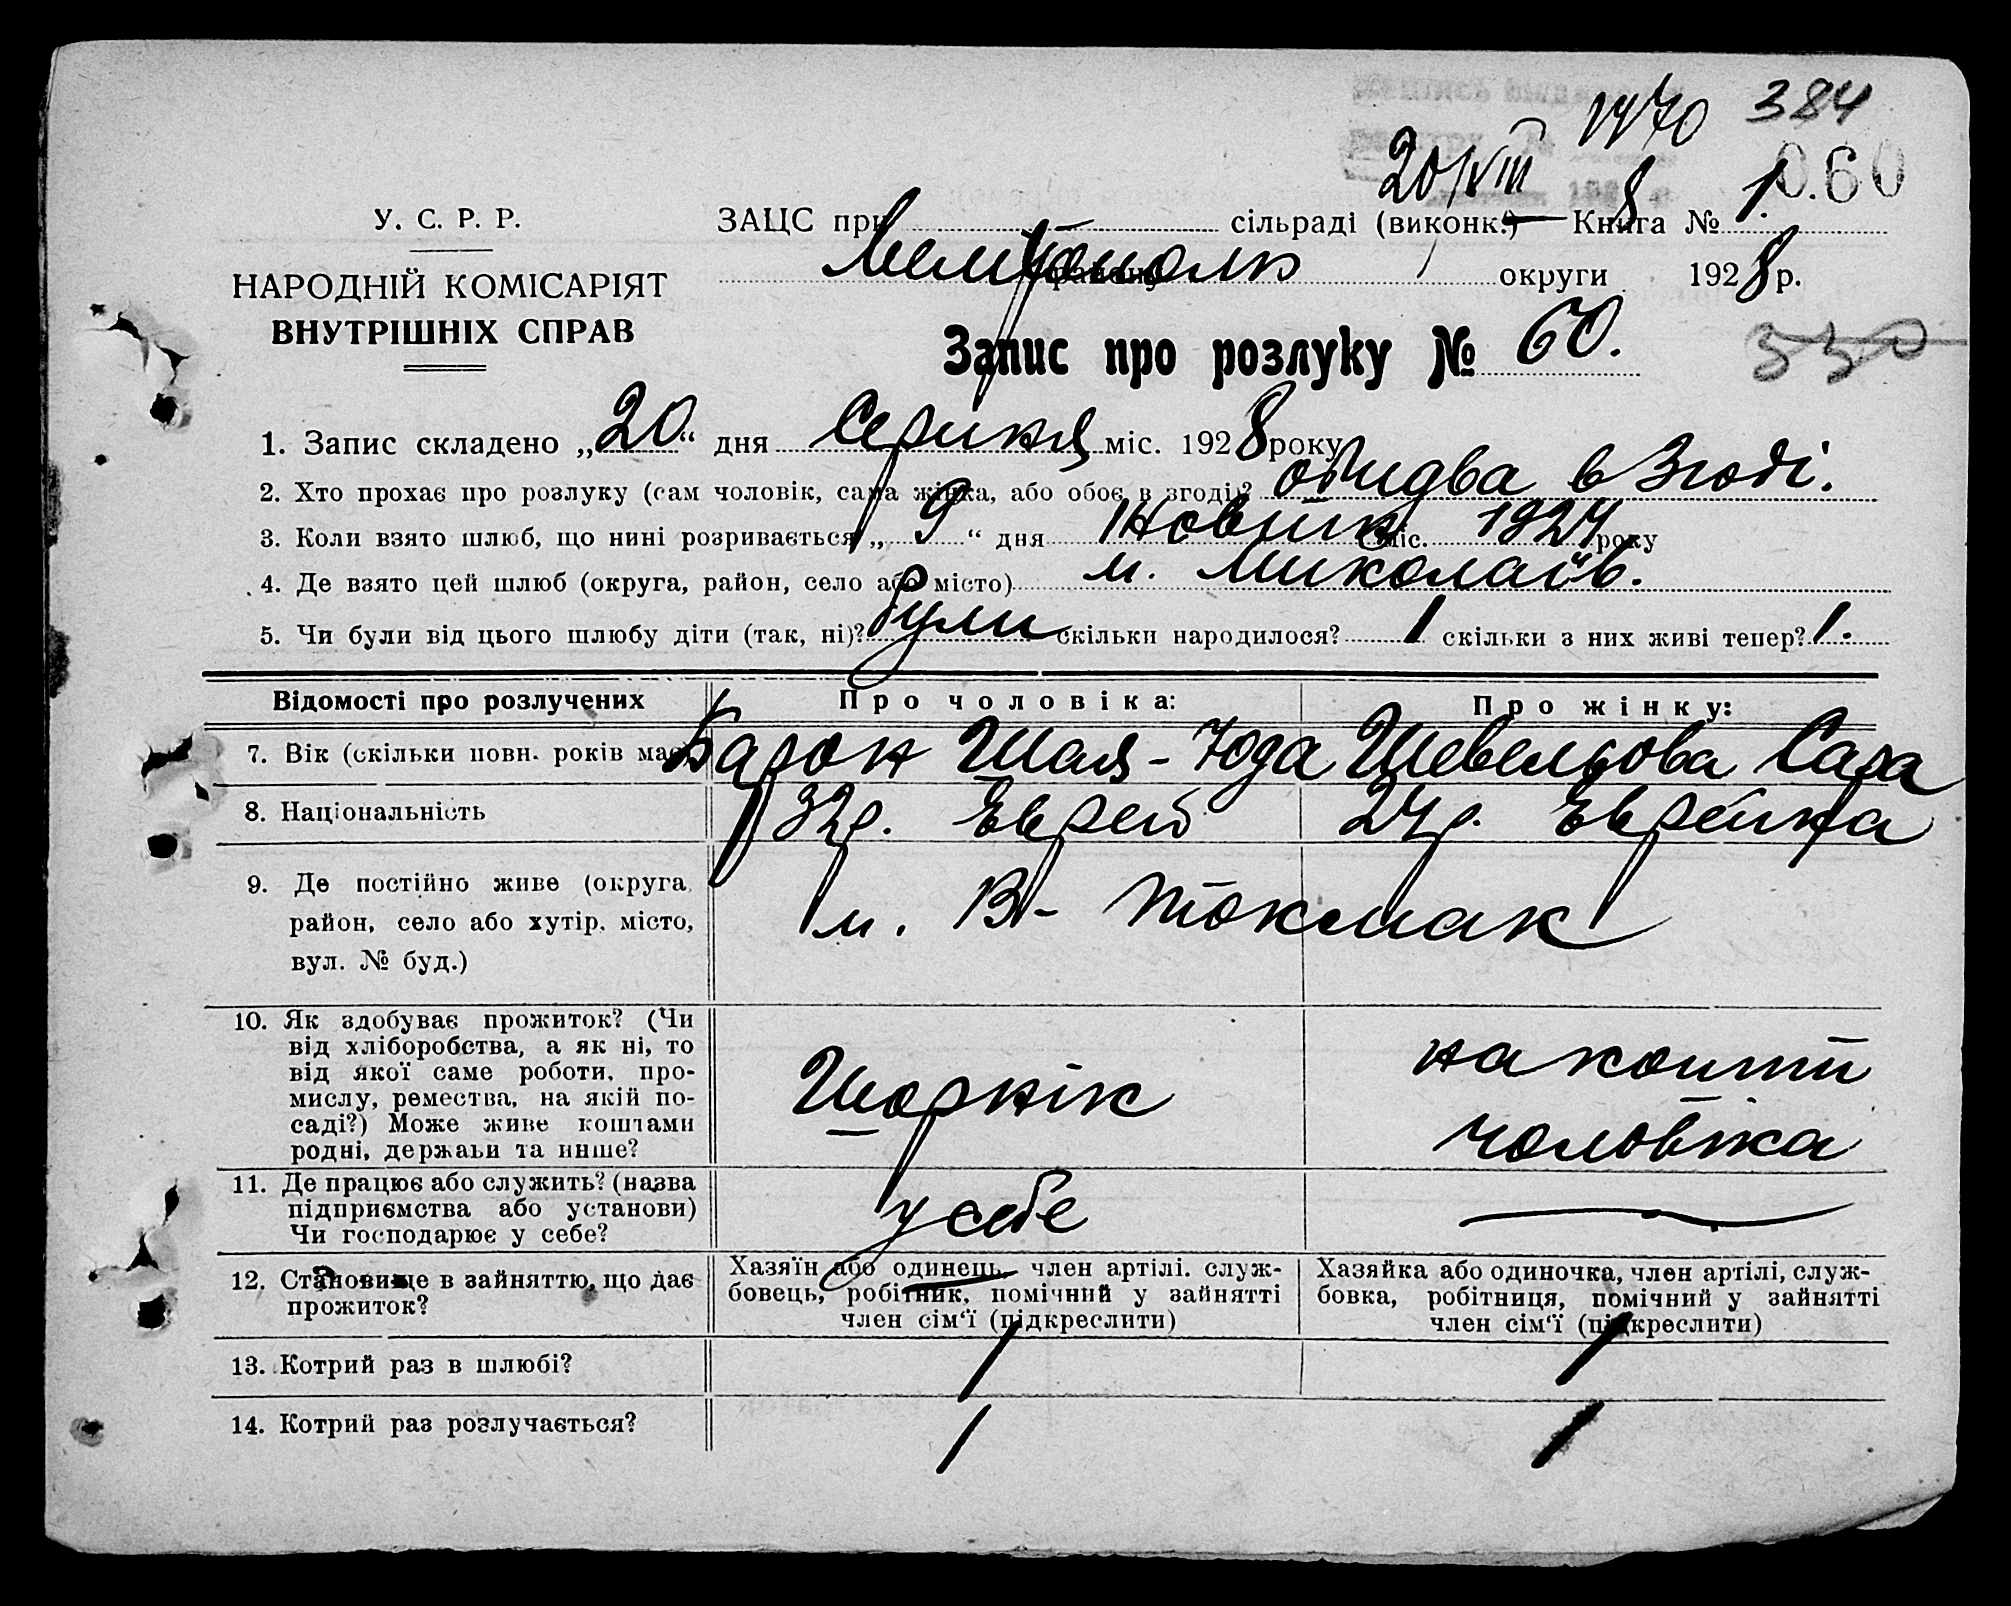 1470 384
20/VIII 8 060
У. С. Р. Р.
ЗАЦС при сільраді (виконк.) Книга № 1.
НАРОДНІЙ КОМІСАРІЯТ
ВНУТРІШНІХ СПРАВ
району округи 1928 р.
Запис про розлуку № 60.
530
1. Запис складено „20“ дня Серпня міс. 1928 року
2. Хто прохає про розлуку (сам чоловік, сама жінка, або обоє в згоді)? обидва в згоді.
3. Коли взято шлюб, що нині розривається „9“ дня міс. 1924 року
4. Де взято цей шлюб (округа, район, село або місто) м. Миколаїв.
5. Чи були від цього шлюбу діти (так, ні)? були скільки народилося? 1 скільки з них живі тепер? 1.
Відомості про розлучених Про чоловіка: Про жінку:
7. Вік (скільки повн. років має) Барон Шая-Юда Шевельова Сара
8. Національність 32р. Еврей 24р. Еврейка
9. Де постійно живе (округа, район, село або хутір, місто, вул. № буд.)
м. В-Токмак
10. Як здобуває прожиток? (Чи
від хліборобства, а як ні, то
від якої саме роботи, про-
мислу, ремества, на якій по-
саді?) Може живе коштами
родні, держави та инше?
Шорнік
на кошти
чоловіка
11. Де працює або служить? (назва
підприємства або установи)
Чи господарює у себе?
у себе
12. Становище в зайняттю, що дає
прожиток?
Хазяїн або одинець, член артілі, служ-
бовець, робітник, помічний у зайнятті
член сім'ї (підкреслити)
Хазяйка або одиночка, член артілі, служ-
бовка, робітниця, помічний у зайнятті
член сім'ї (підкреслити)
13. Котрий раз в шлюбі? 1 1
14. Котрий раз розлучається? 1 1